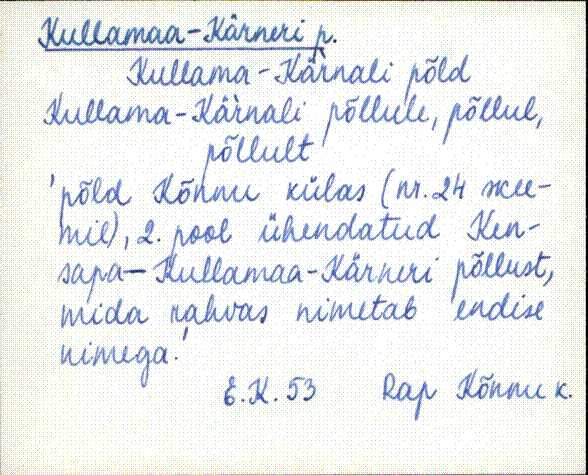 Kullamaa-Kärneri p.
Kullama-Kär̀nali põld
Kullama-Kär̀nali põllule, põllul,
põllult
'põld Kõnnu külas (nr. 24 skee-
mil), 2. pool ühendatud Ken-
sapa-Kullamaa-Kärneri põllust,
mida rahvas nimetab endise
nimega.'
E.K. 53 Rap Kõnnu k.